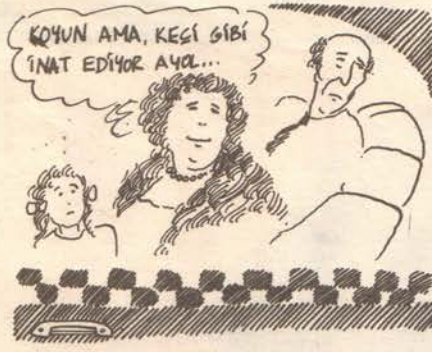 KOYUN AMA, KEÇİ GİBİ
İNAT EDİYOR AYOL...